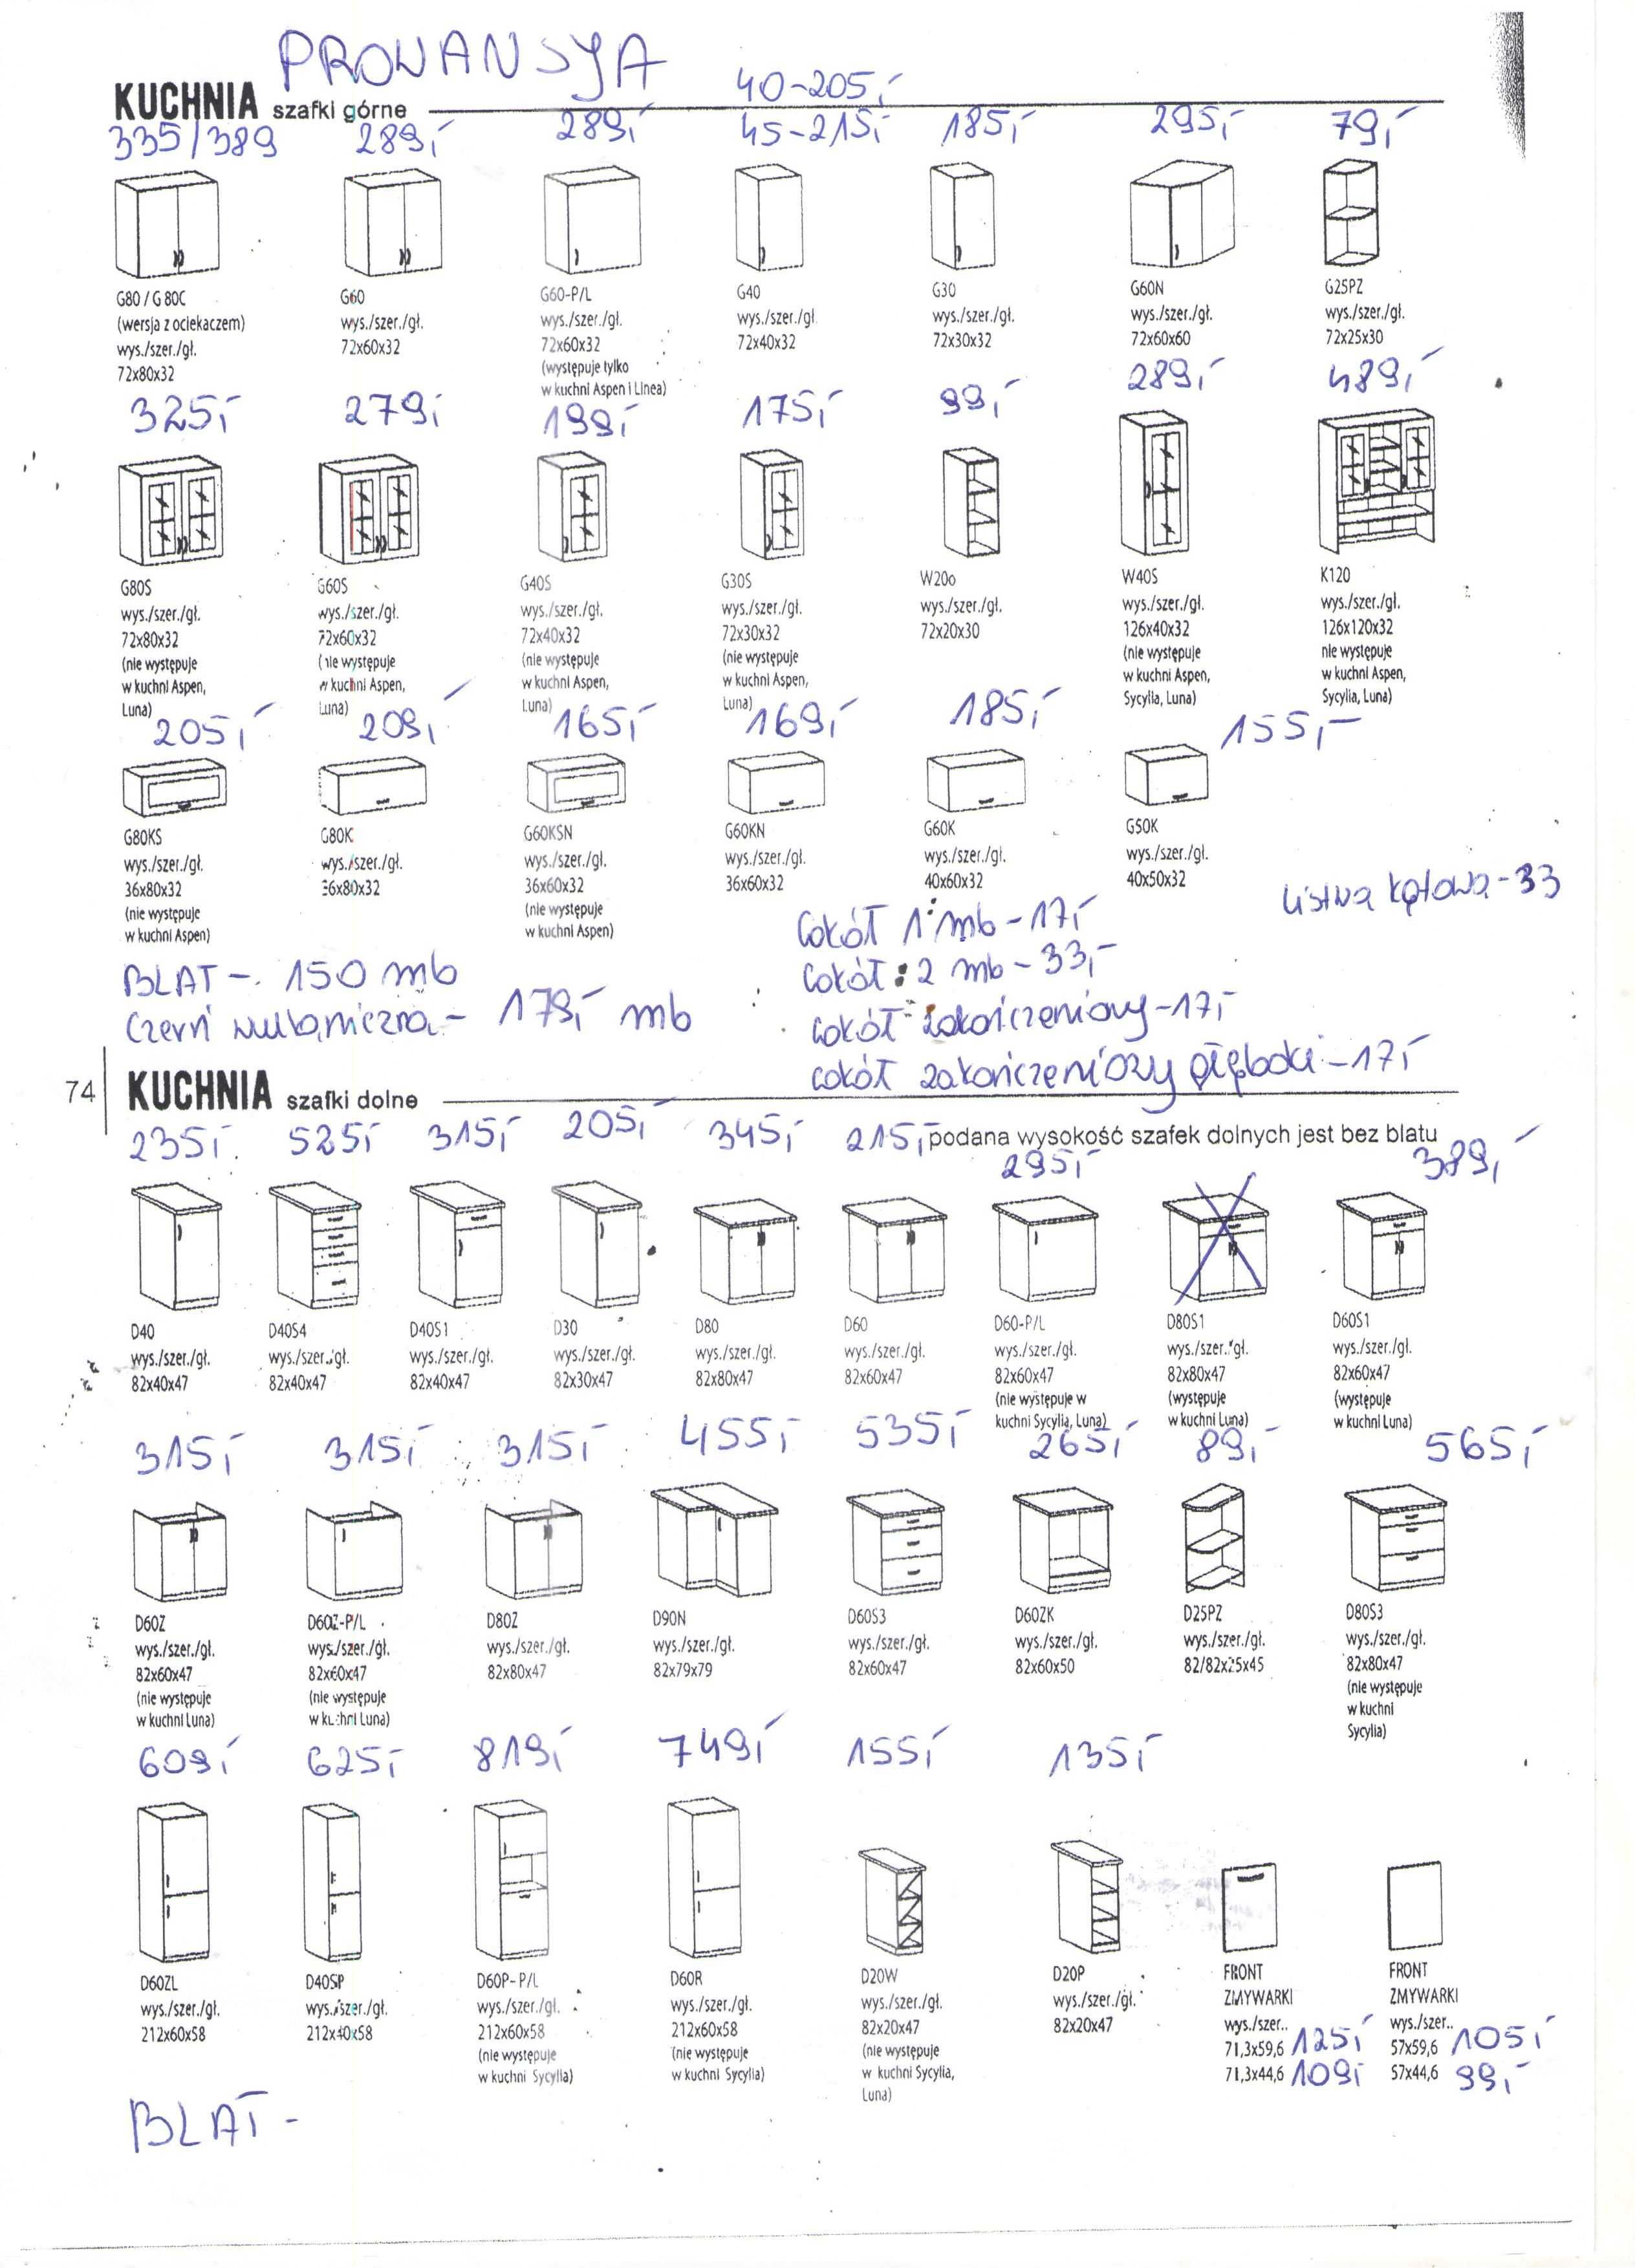 PROWANSYA
KUCHNIA szafki górne
40-205,-
335/389 289,- 289,- 45-215,- 185,- 295,- 79,-
G80 / G 80C
(wersja z ociekaczem)
wys./szer./gł.
72x80x32
G60
wys./szer./gł.
72x60x32
G60-P/L
wys./szer./gł.
72x60x32
(występuje tylko
w kuchni Aspen i Linea)
G40
wys./szer./gł.
72x40x32
G30
wys./szer./gł.
72x30x32
G60N
wys./szer./gł.
72x60x60
G25PZ
wys./szer./gł.
72x25x30
325,- 279,- 199,- 175,- 99,- 289,- 489,-
G80S
wys./szer./gł.
72x80x32
(nie występuje
w kuchni Aspen,
Luna)
G60S
wys./szer./gł.
72x60x32
(nie występuje
w kuchni Aspen,
Luna)
G40S
wys./szer./gł.
72x40x32
(nie występuje
w kuchni Aspen,
Luna)
G30S
wys./szer./gł.
72x30x32
(nie występuje
w kuchni Aspen,
Luna)
W20o
wys./szer./gł.
72x20x30
W40S
wys./szer./gł.
126x40x32
(nie występuje
w kuchni Aspen,
Sycylia, Luna)
K120
wys./szer./gł.
126x120x32
nie występuje
w kuchni Aspen,
Sycylia, Luna)
205,- 209,- 165,- 169,- 185,- 155,-
G80KS
wys./szer./gł.
36x80x32
(nie występuje
w kuchni Aspen)
G80K
wys./szer./gł.
36x80x32
G60KSN
wys./szer./gł.
36x60x32
(nie występuje
w kuchni Aspen)
G60KN
wys./szer./gł.
36x60x32
G60K
wys./szer./gł.
40x60x32
G50K
wys./szer./gł.
40x50x32
Listwa kątowa - 33
BLAT - 150 mb
Czerń wulkaniczna - 179,- mb
Cokół 1 mb - 17,-
Cokół 2 mb - 33,-
cokół zakończeniowy - 17,-
cokół zakończeniowy głęboki - 17,-
74
KUCHNIA szafki dolne
podana wysokość szafek dolnych jest bez blatu
235,- 525,- 315,- 205,- 345,- 215,- 295,- 389,-
D40
wys./szer./gł.
82x40x47
D40S4
wys./szer./gł.
82x40x47
D40S1
wys./szer./gł.
82x40x47
D30
wys./szer./gł.
82x30x47
D80
wys./szer./gł.
82x80x47
D60
wys./szer./gł.
82x60x47
D60-P/L
wys./szer./gł.
82x60x47
(nie występuje w
kuchni Sycylia, Luna)
D80S1
wys./szer./gł.
82x80x47
(występuje
w kuchni Luna)
D60S1
wys./szer./gł.
82x60x47
(występuje
w kuchni Luna)
315,- 315,- 315,- 455,- 535,- 265,- 89,- 565,-
D60Z
wys./szer./gł.
82x60x47
(nie występuje
w kuchni Luna)
D60Z-P/L
wys./szer./gł.
82x60x47
(nie występuje
w kuchni Luna)
D80Z
wys./szer./gł.
82x80x47
D90N
wys./szer./gł.
82x79x79
D60S3
wys./szer./gł.
82x60x47
D60ZK
wys./szer./gł.
82x60x50
D25PZ
wys./szer./gł.
82/82x25x45
D80S3
wys./szer./gł.
82x80x47
(nie występuje
w kuchni
Sycylia)
609,- 625,- 819,- 749,- 155,- 135,-
D60ZL
wys./szer./gł.
212x60x58
D40SP
wys./szer./gł.
212x40x58
D60P-P/L
wys./szer./gł.
212x60x58
(nie występuje
w kuchni Sycylia)
D60R
wys./szer./gł.
212x60x58
(nie występuje
w kuchni Sycylia)
D20W
wys./szer./gł.
82x20x47
(nie występuje
w kuchni Sycylia,
Luna)
D20P
wys./szer./gł.
82x20x47
FRONT
ZMYWARKI
wys./szer..
71,3x59,6 125,-
71,3x44,6 109,-
FRONT
ZMYWARKI
wys./szer..
57x59,6 105,-
57x44,6 99,-
BLAT -